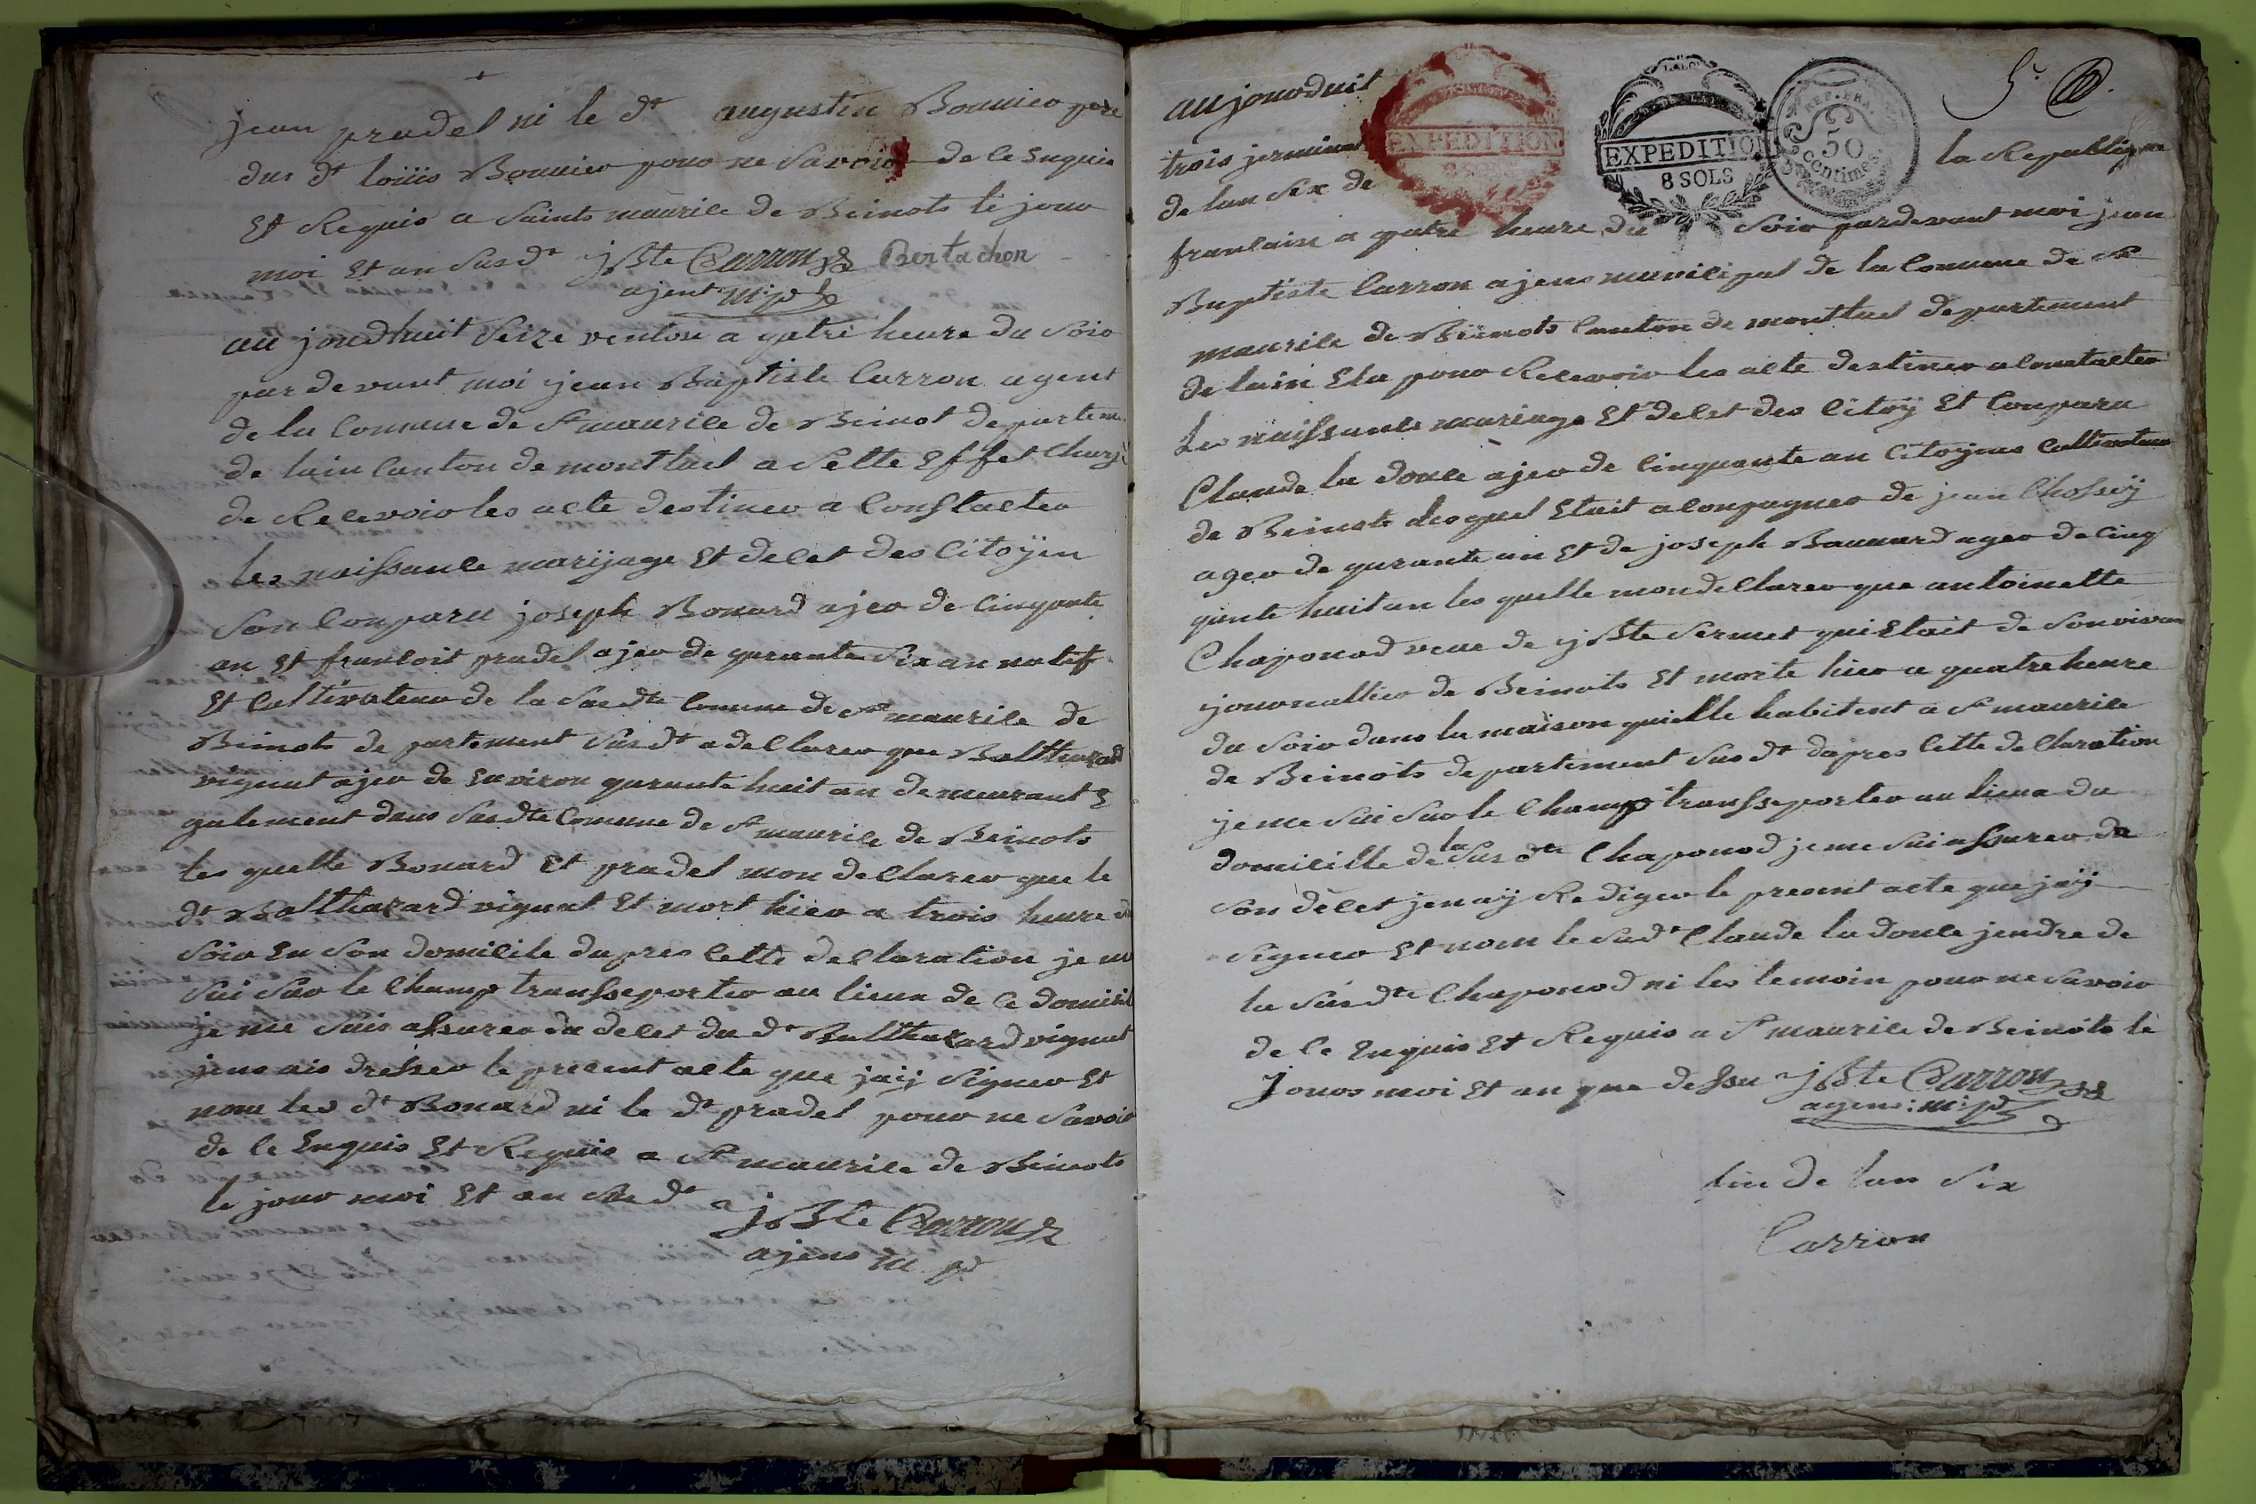 jean pradel ni le dt augustin Bouvier pere
dus dt loüis Bouvier pour ne Savoir de ce Enquis
Et Requis a Saints maurice de Beinots le jour
moi Et an Susdt jBte Carron Bertachon
ajent mipal
au joudhuit Seize ventose a yatre heure du Soir
par devant moi jean Baptiste Carron agent
de la Comune de St maurice de Beinot departem
de lain Canton de montluel a Sette Effet Charje
de Recevoir les acte destiner a Constacter
les naissance marijage Et decet des Citoÿen
Son Conparu joseph Bonard ajer de Cinqante
an Et francoit pradel ajer de quarante Six an natif
Et Cultivateur de la Susdte Comune de St maurice de
Beinots departement Susdt a declarer que Baltthazard
vignat ajer de Environ quarante huit an demeurant E
galement dans Susdte Comune de St maurice de Beinots
les quelle Bonard Et pradel mon declarer que le
dt Baltthazard vignat Et mort hier a trois heure du
Soir En Son domicile dapres Cette declaration je m
Sui Sur le Champ transseporter au lieux de Ce domicil
je me Suis assurer du decet du dt Baltthazard vignat
jens ais dresser le precent acte que jaij Signer Et
nom les dt Bonard ni le dt pradel pour ne Savoir
de Ce Enquis Et Requis a St maurice de Beinots
le jour moi Et an Susdt
jBte Carron
ajens m pal
aujourduit
EXPEDITION
8 SOLS
EXPEDITION
8 SOLS
REP. FRA.
50
Centimes
trois jerminal
la Republique
de lan Six de
francaise a quatre heure du Soir pardevant moi jean
Baptiste Carron ajens municipal de la Comune de St
maurice de Beinots Canton de montluel departement
de lain Elu pour Recevoir les acte destiner a Constacter
Les naissance mariage Et decet des Citoÿ Et Conparu
Claude la douce ajer de Cinquante an Citoyens Cultivateur
de Beinots lesquel Etait aConpagner de jean Chossij
ager de quarante an Et de joseph Bonnard ager de Cinq
qante huit an les quelle mon declarer que antoinette
Chaponod veue de jBte Sermet qui Etait de Son vivan
journallier de Beinots Et morte hier a quatre heure
du Soir dans la maison quielle habitent a St maurice
de Beinots departement Susdt dapres Cette declaration
je me Sui Sur le Champ transseporter au lieux du
domicille de la Susdte Chaponod je me Sui assurer du
Son decet jen aij Rediger le precent acte que jaij
Signer Et nom le Sudt Claude la douce jendre de
la Susdte Chaponod ni les temoin pour ne Savoir
de Ce Enquis Et Requis a St maurice de Beinots le
Jours moi Et an que dessu jBte Carron
agens: m: pal
fin de lan Six
Carron